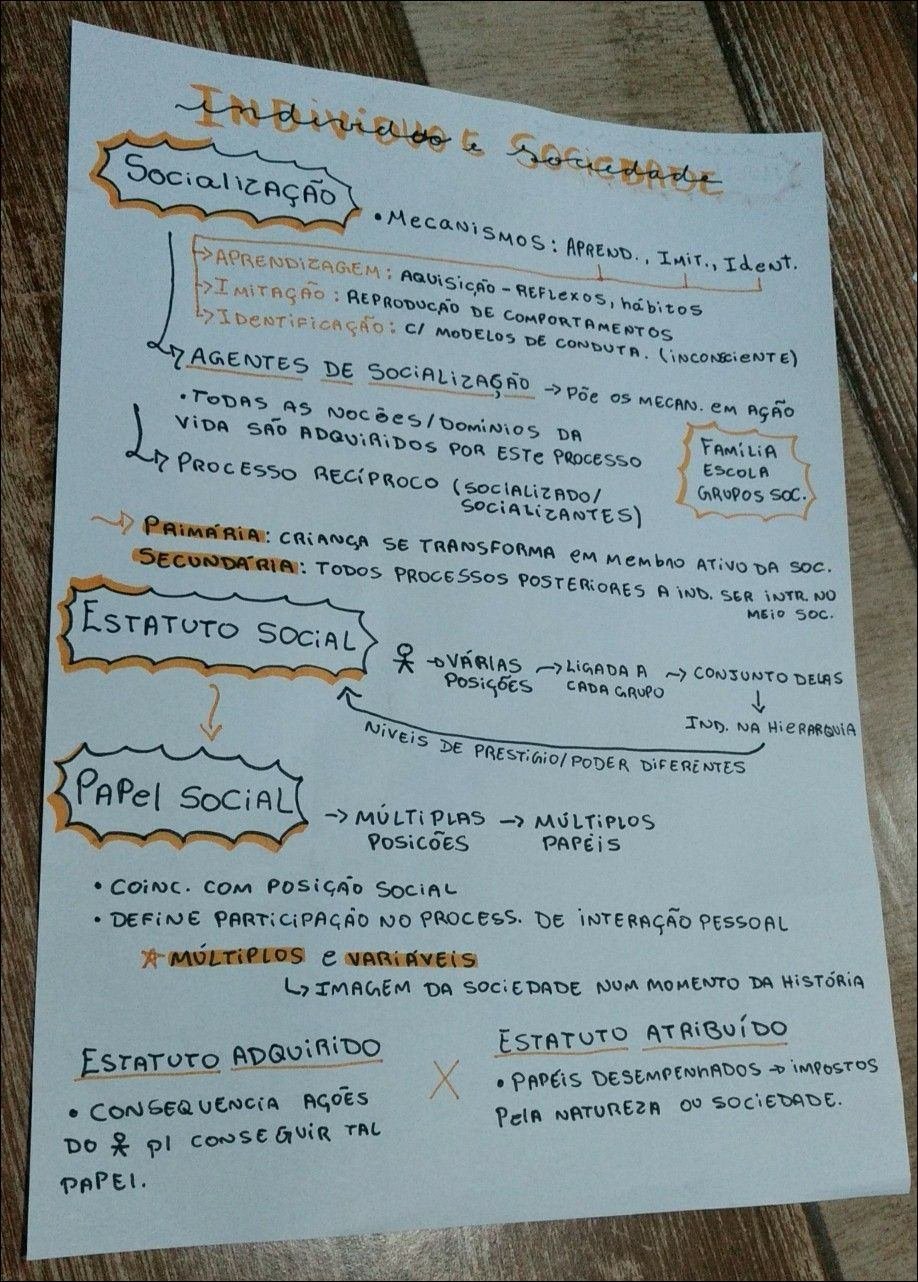 Individuo e Sociedade
Socialização
• Mecanismos: Aprend., Imit., Ident.
→ Aprendizagem: Aquisição - Reflexos, hábitos
→ Imitação: Reprodução de comportamentos
→ Identificação: c/ modelos de conduta. (inconsciente)
→ Agentes de socialização → Põe os mecan. em ação
• Todas as nocões/domínios da
vida são adquiridos por este processo
Família
Escola
Grupos soc.
→ Processo recíproco (socializado/
socializantes)
→ Primária: criança se transforma em membro ativo da soc.
Secundária: todos processos posteriores a ind. ser intr. no
meio soc.
Estatuto social
→ várias posições → ligada a cada grupo → conjunto delas
↓
Ind. na hierarquia
Níveis de prestígio/poder diferentes
Papel social
→ múltiplas posicões → múltiplos papéis
• Coinc. com posição social
• Define participação no process. de interação pessoal
☆ múltiplos e variáveis
↳ Imagem da sociedade num momento da história
Estatuto adquirido X Estatuto atribuído
• Consequencia ações
do p/ conseguir tal
papel.
• Papéis desempenhados → impostos
pela natureza ou sociedade.